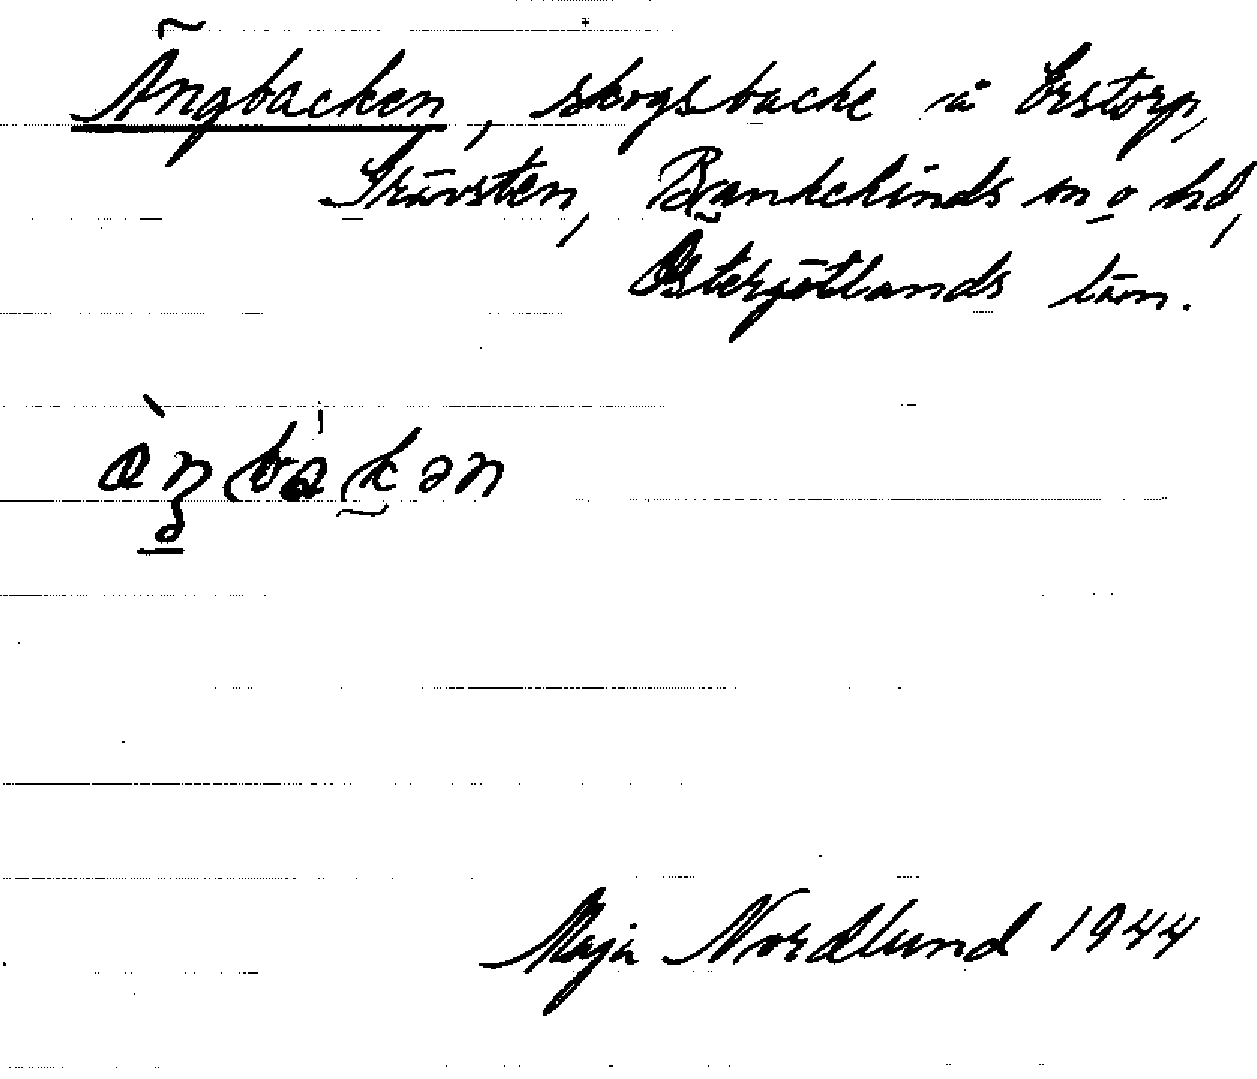 Ängbacken, skogsbacke i Erstorp,
Trävsten, Bankekinds sn o hd,
Östergötlands län.
Maja Nordlund 1944